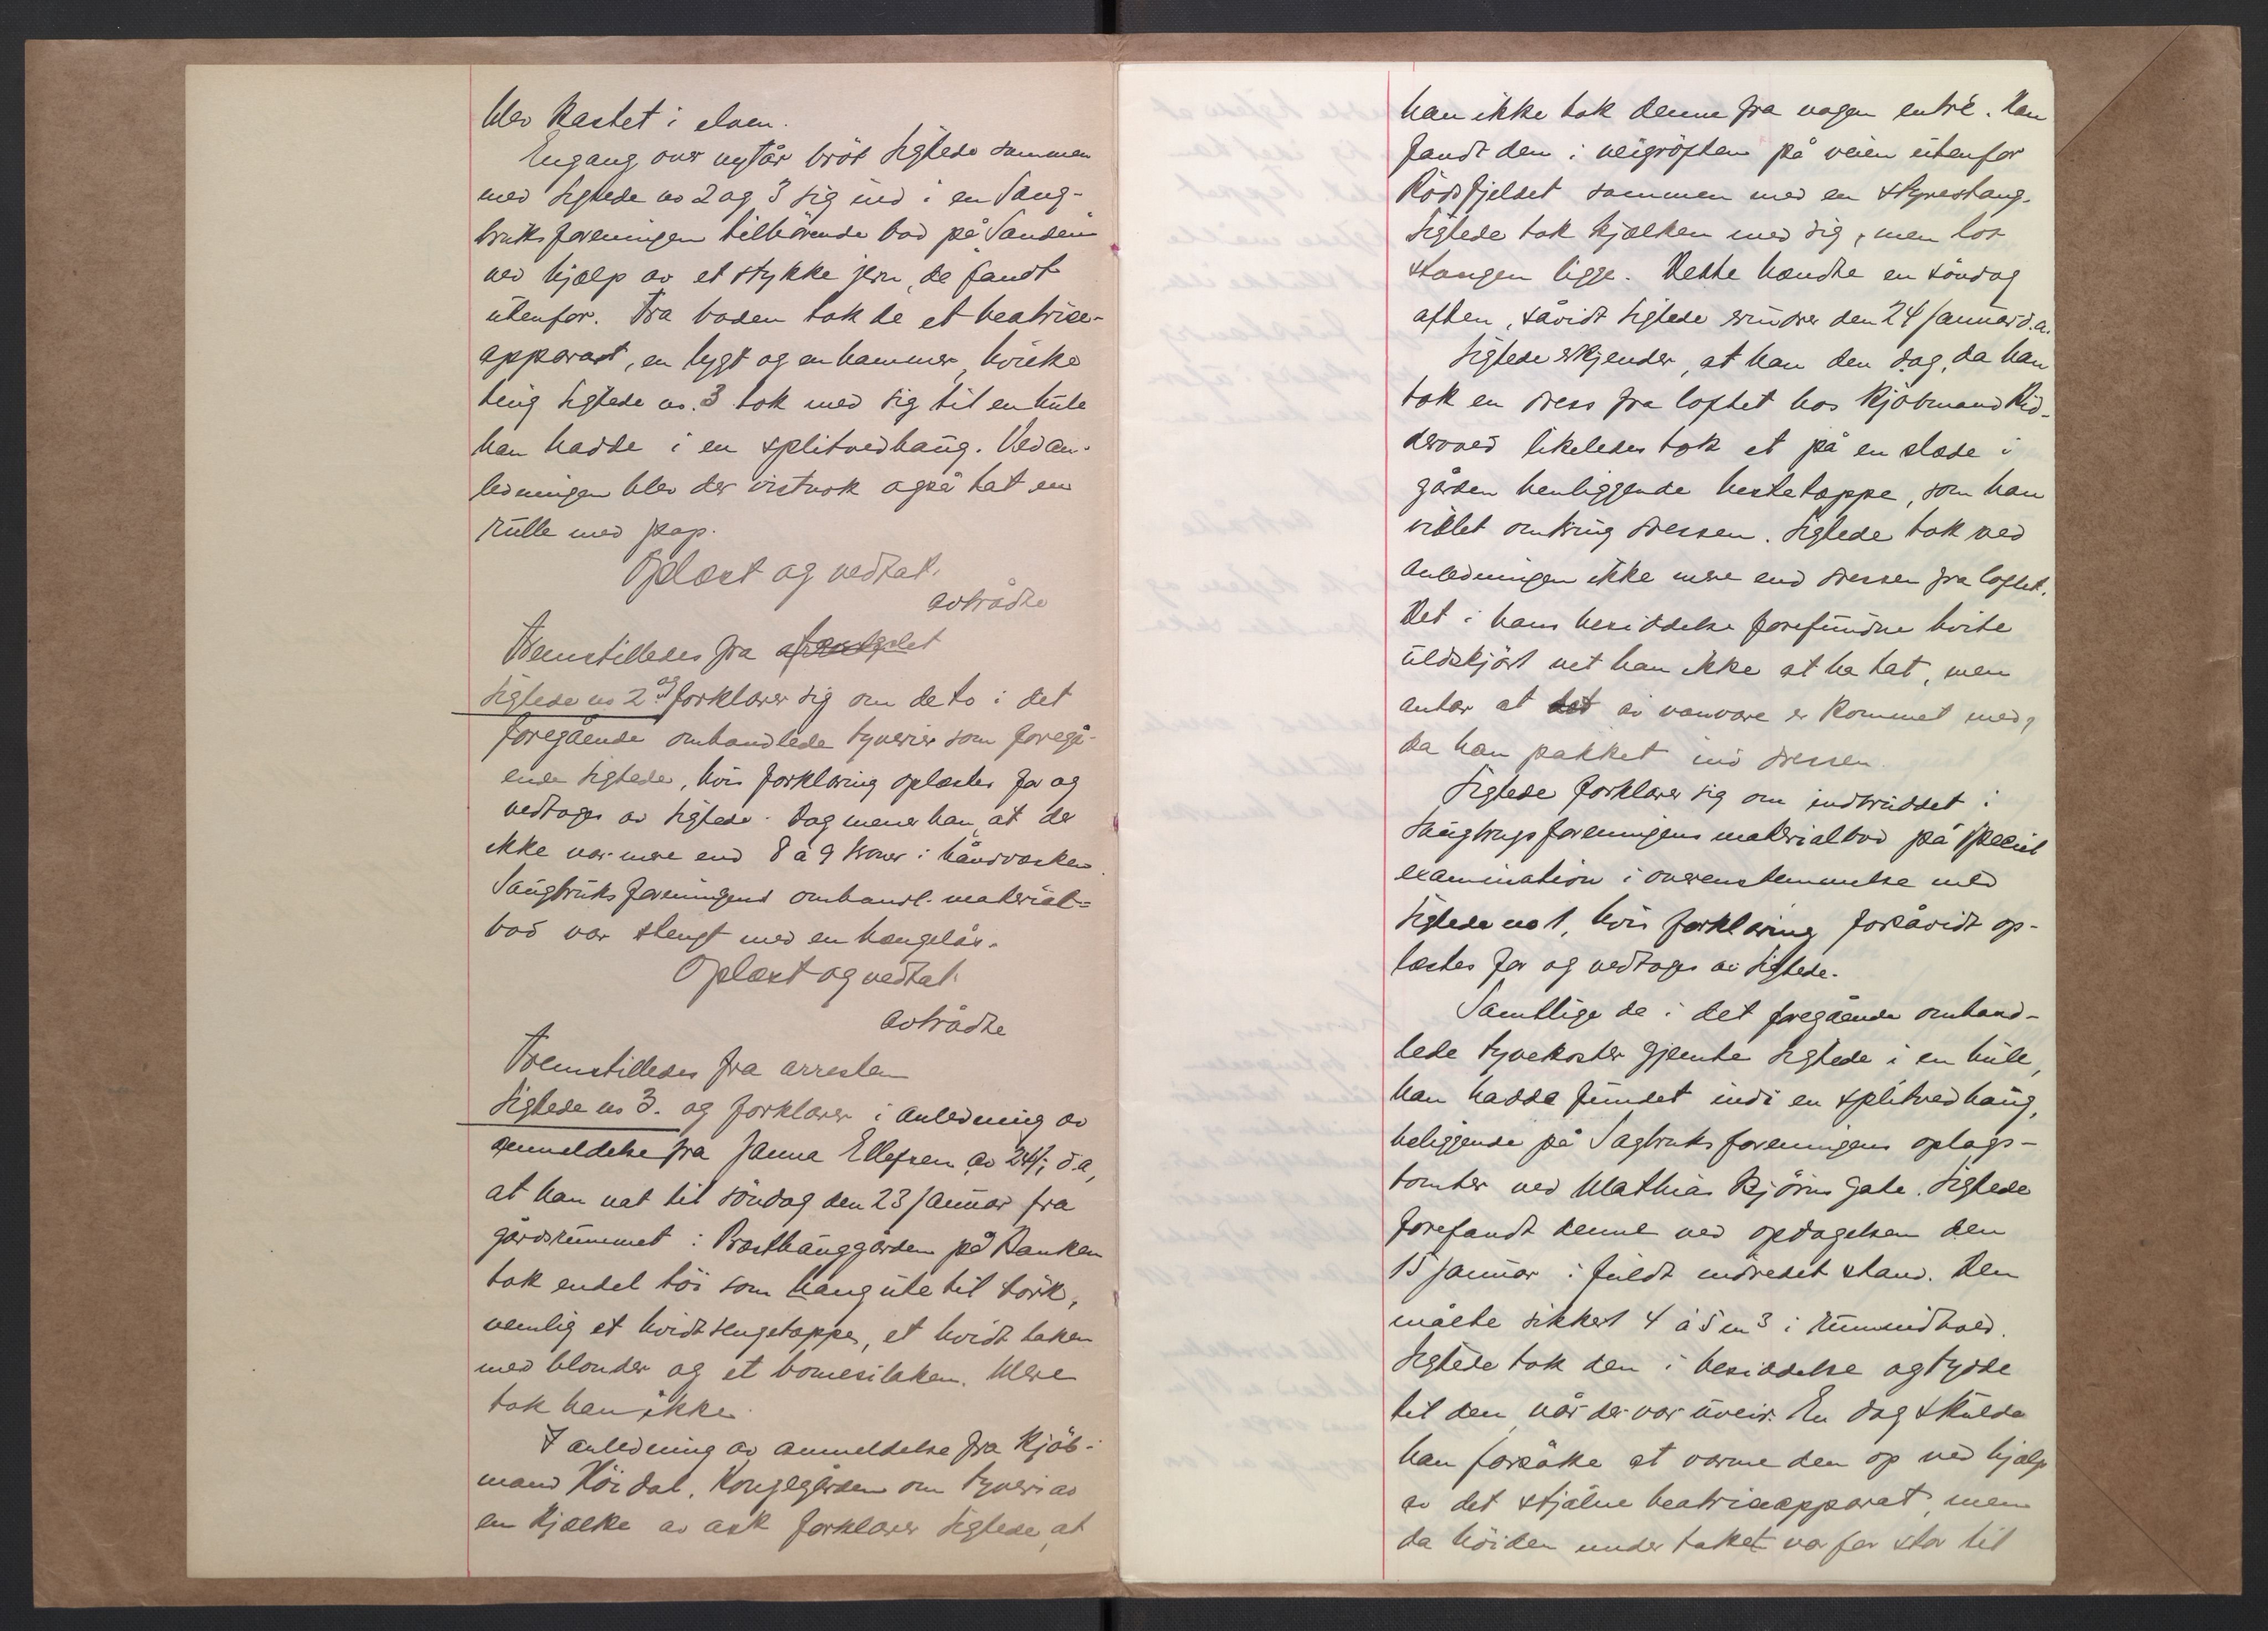 blev kastet i elven.
Engang over nytår bröt sigtede sammen
med sigtede no 2 og 3 sig ind i en Saug-
bruksforeningen tilhörende bod på "Sanden"
ved hjælp av et stykke jern, de fandt
utenfor. Fra boden tok de et beatrice-
apparat, en lygt og en hammer, hvilke
ting sigtede no. 3 tok med sig til en hule
han hadde i en splitvedhaug. Ved an-
ledningen blev der vistnok også tat en
rulle med pap.
Oplæst og vedtat.
avtrådte
Fremstilledes fra
sigtede no 2 og forklarer sig om de to i det
foregående omhandlede tyverier som foregå-
ende sigtede, hvis forklaring oplæstes for og
vedtages av sigtede. Dog mener han at der
ikke var mere end 8 à 9 kroner i håndvæsken.
Saugbruksforeningens omhandl. material-
bod var stengt med en hængelås.
Oplæst og vedtat.
avtrådte
Fremstilledes fra arresten
Sigtede no 3. og forklarer i anledning av
anmeldelse fra Janna Ellefsen av 24/1 d.a,
at han nat til söndag den 23 januar fra
gårdsrummet i Prosthauggården på Banken
tok endel töi som hang ute til törk,
nemlig et hvidt sengetæppe, et hvidt laken
med blonder og et bomesilaken. Mere
tok han ikke.
I anledning av anmeldelse fra kjöb-
mand Höidal, Kongegården om tyveri av
en kjælke av ask forklarer sigtede, at
han ikke tok denne fra nogen entré. Han
fandt den i veigröften på veien utenfor
Rödsfjeldet sammen med en styrestang.
Sigtede tok kjælken med sig, men lot
stangen ligge. Dette hændte en söndag
aften, såvidt sigtede erindrer den 24 januar d.a.
Sigtede erkjender, at han den dag, da han
tok en dress fra loftet hos kjöbmand Rid-
dervold likeledes tok et på en slæde i
gården henliggende hestetæppe, som han
viklet omkring dressen. Sigtede tok ved
anledningen ikke mere end dressen fra loftet.
Det i hans besiddelse forefundne hvite
uldskjört vet han ikke at ha tat, men
antar at det av vanvare er kommet med,
da han pakket ind dressen.
Sigtede forklarer sig om indbruddet i
Saugbrugsforeningens materialbod på speciel
examination i overenstemmelse med
sigtede no 1, hvis forklaring forsåvidt op-
læstes for og vedtages av sigtede.
Samtlige de i det foregående omhand-
lede tyvekoster gjemte sigtede i en hule,
han hadde fundet indi en splitvedhaug,
beliggende på Sagbruksforeningens oplags-
tomter ved Mathias Bjørns gate. Sigtede
forefandt denne ved opdagelsen den
15 januar i fuldt indredet stand. Den
målte sikkert 4 à 5 m3 i rumindhold.
Sigtede tok den i besiddelse og tydde
til den, når der var uveir. En dag skulde
han forsöke at varme den op ved hjælp
av det stjålne beatriceapparat, men
da höiden under taket var for stor til